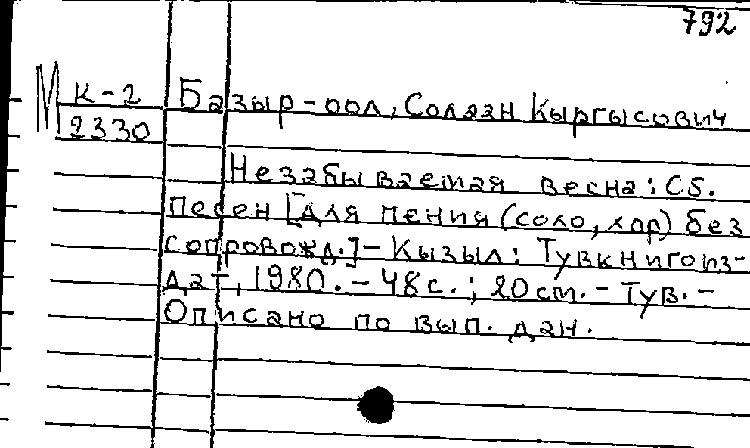 792
М К-2 Базыр-оол, Солаан Кыргысович
2330
Незабываемая весна: Сб.
песен [для пения (соло, хор) без
сопровожд.] - Кызыл: Тувкнигоиз-
дат, 1980. - 48 с.; 20 cm. - Тув. -
Описано по вып. дан.